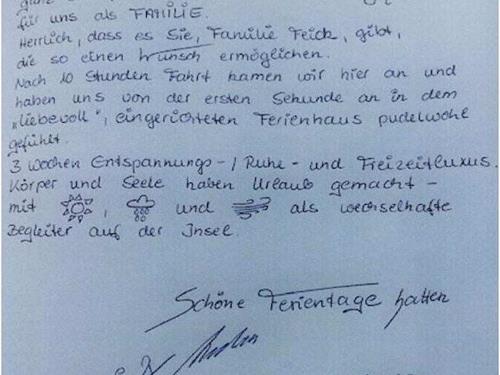 ganz
für uns als FAMILIE.
Herrlich, dass es Sie, Familie Feick, gibt,
die so einen Wunsch ermöglichen.
Nach 10 Stunden Fahrt kamen wir hier an und
haben uns von der ersten Sekunde an in dem
„liebevoll", eingerichteten Ferienhaus pudelwohl
gefühlt.
3 Wochen Entspannungs-/Ruhe- und Freizeitluxus.
Körper und Seele haben Urlaub gemacht -
mit , und als wechselhafte
Begleiter auf der Insel
Schöne Ferientage hatten